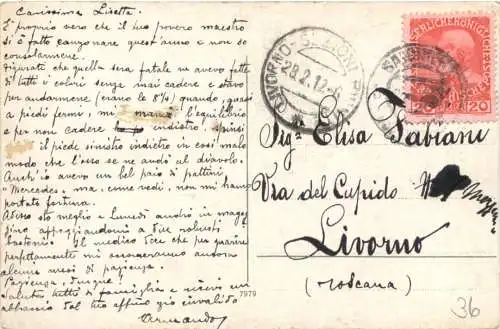 Carissima Lisetta.
È proprio vero che il tuo povero maestro
si è fatto canzonare quest'anno e non se
consolarmene.
Figurati che quella sera fatale ne avevo fatte
di tutti i colori senza mai cadere e stavo
per andarmene (erano le 8¾) quando, quasi
a piedi fermi, mi mancò l'equilibrio
e per non cadere indietro, spinsi
il piede sinistro indietro in così mal
modo che l'osso se ne andò al diavolo.
Anch'io avevo un bel paio di pattini
"Mercedes", ma, come vedi, non mi hanno
portato fortuna.
Adesso sto meglio e Lunedì andrò in magaz-
zino appoggiandomi a due robusti
bastoni. Il medico dice che per guarire
perfettamente mi occorreranno ancora
alcuni mesi di pazienza.
Pazienza, dunque!
Saluta tutti di famiglia e ricevi un
abbraccio dal tuo affmo zio invalido
Armando
7979
LIVORNO
28.2.12
20 20
Sigª Elisa Fabiani
Via del Cupido
Livorno
(Toscana)
36